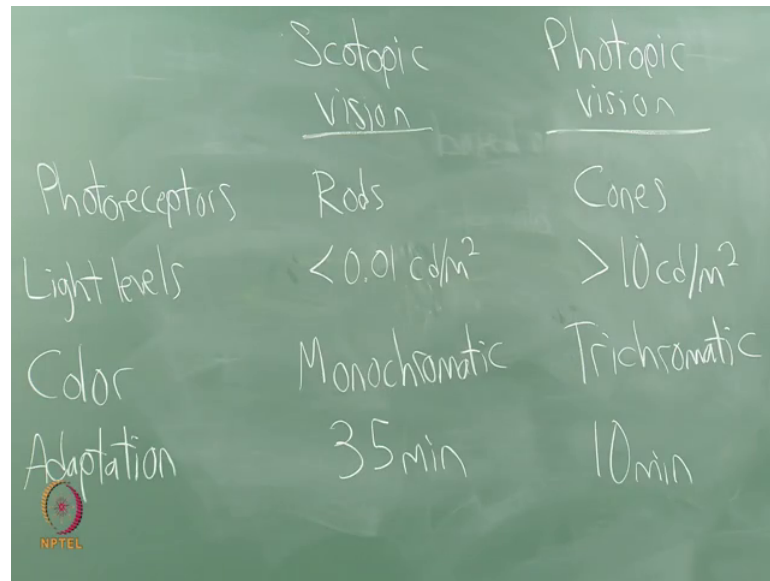 Scotopic vision Photopic vision
Photoreceptors Rods Cones
Light levels < 0.01 cd/m² > 10 cd/m²
Color Monochromatic Trichromatic
Adaptation 35 min 10 min
NPTEL